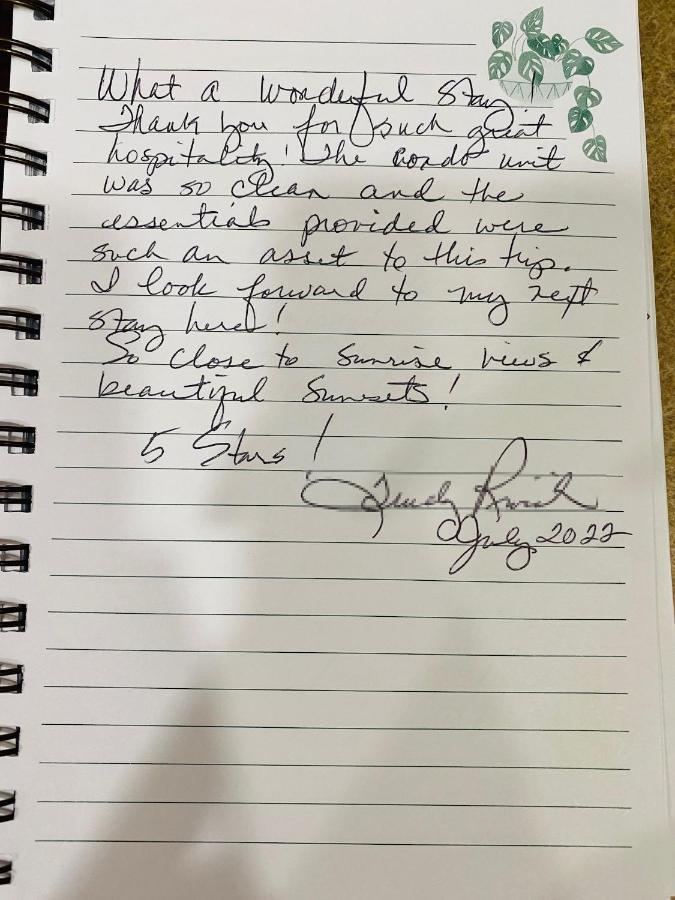 What a wonderful stay!
Thank you for such great
hospitality! The condo unit
was so clean and the
essentials provided were
such an asset to this trip.
I look forward to my next
stay here!
So close to sunrise views &
beautiful sunsets!
5 Stars!
July 2022